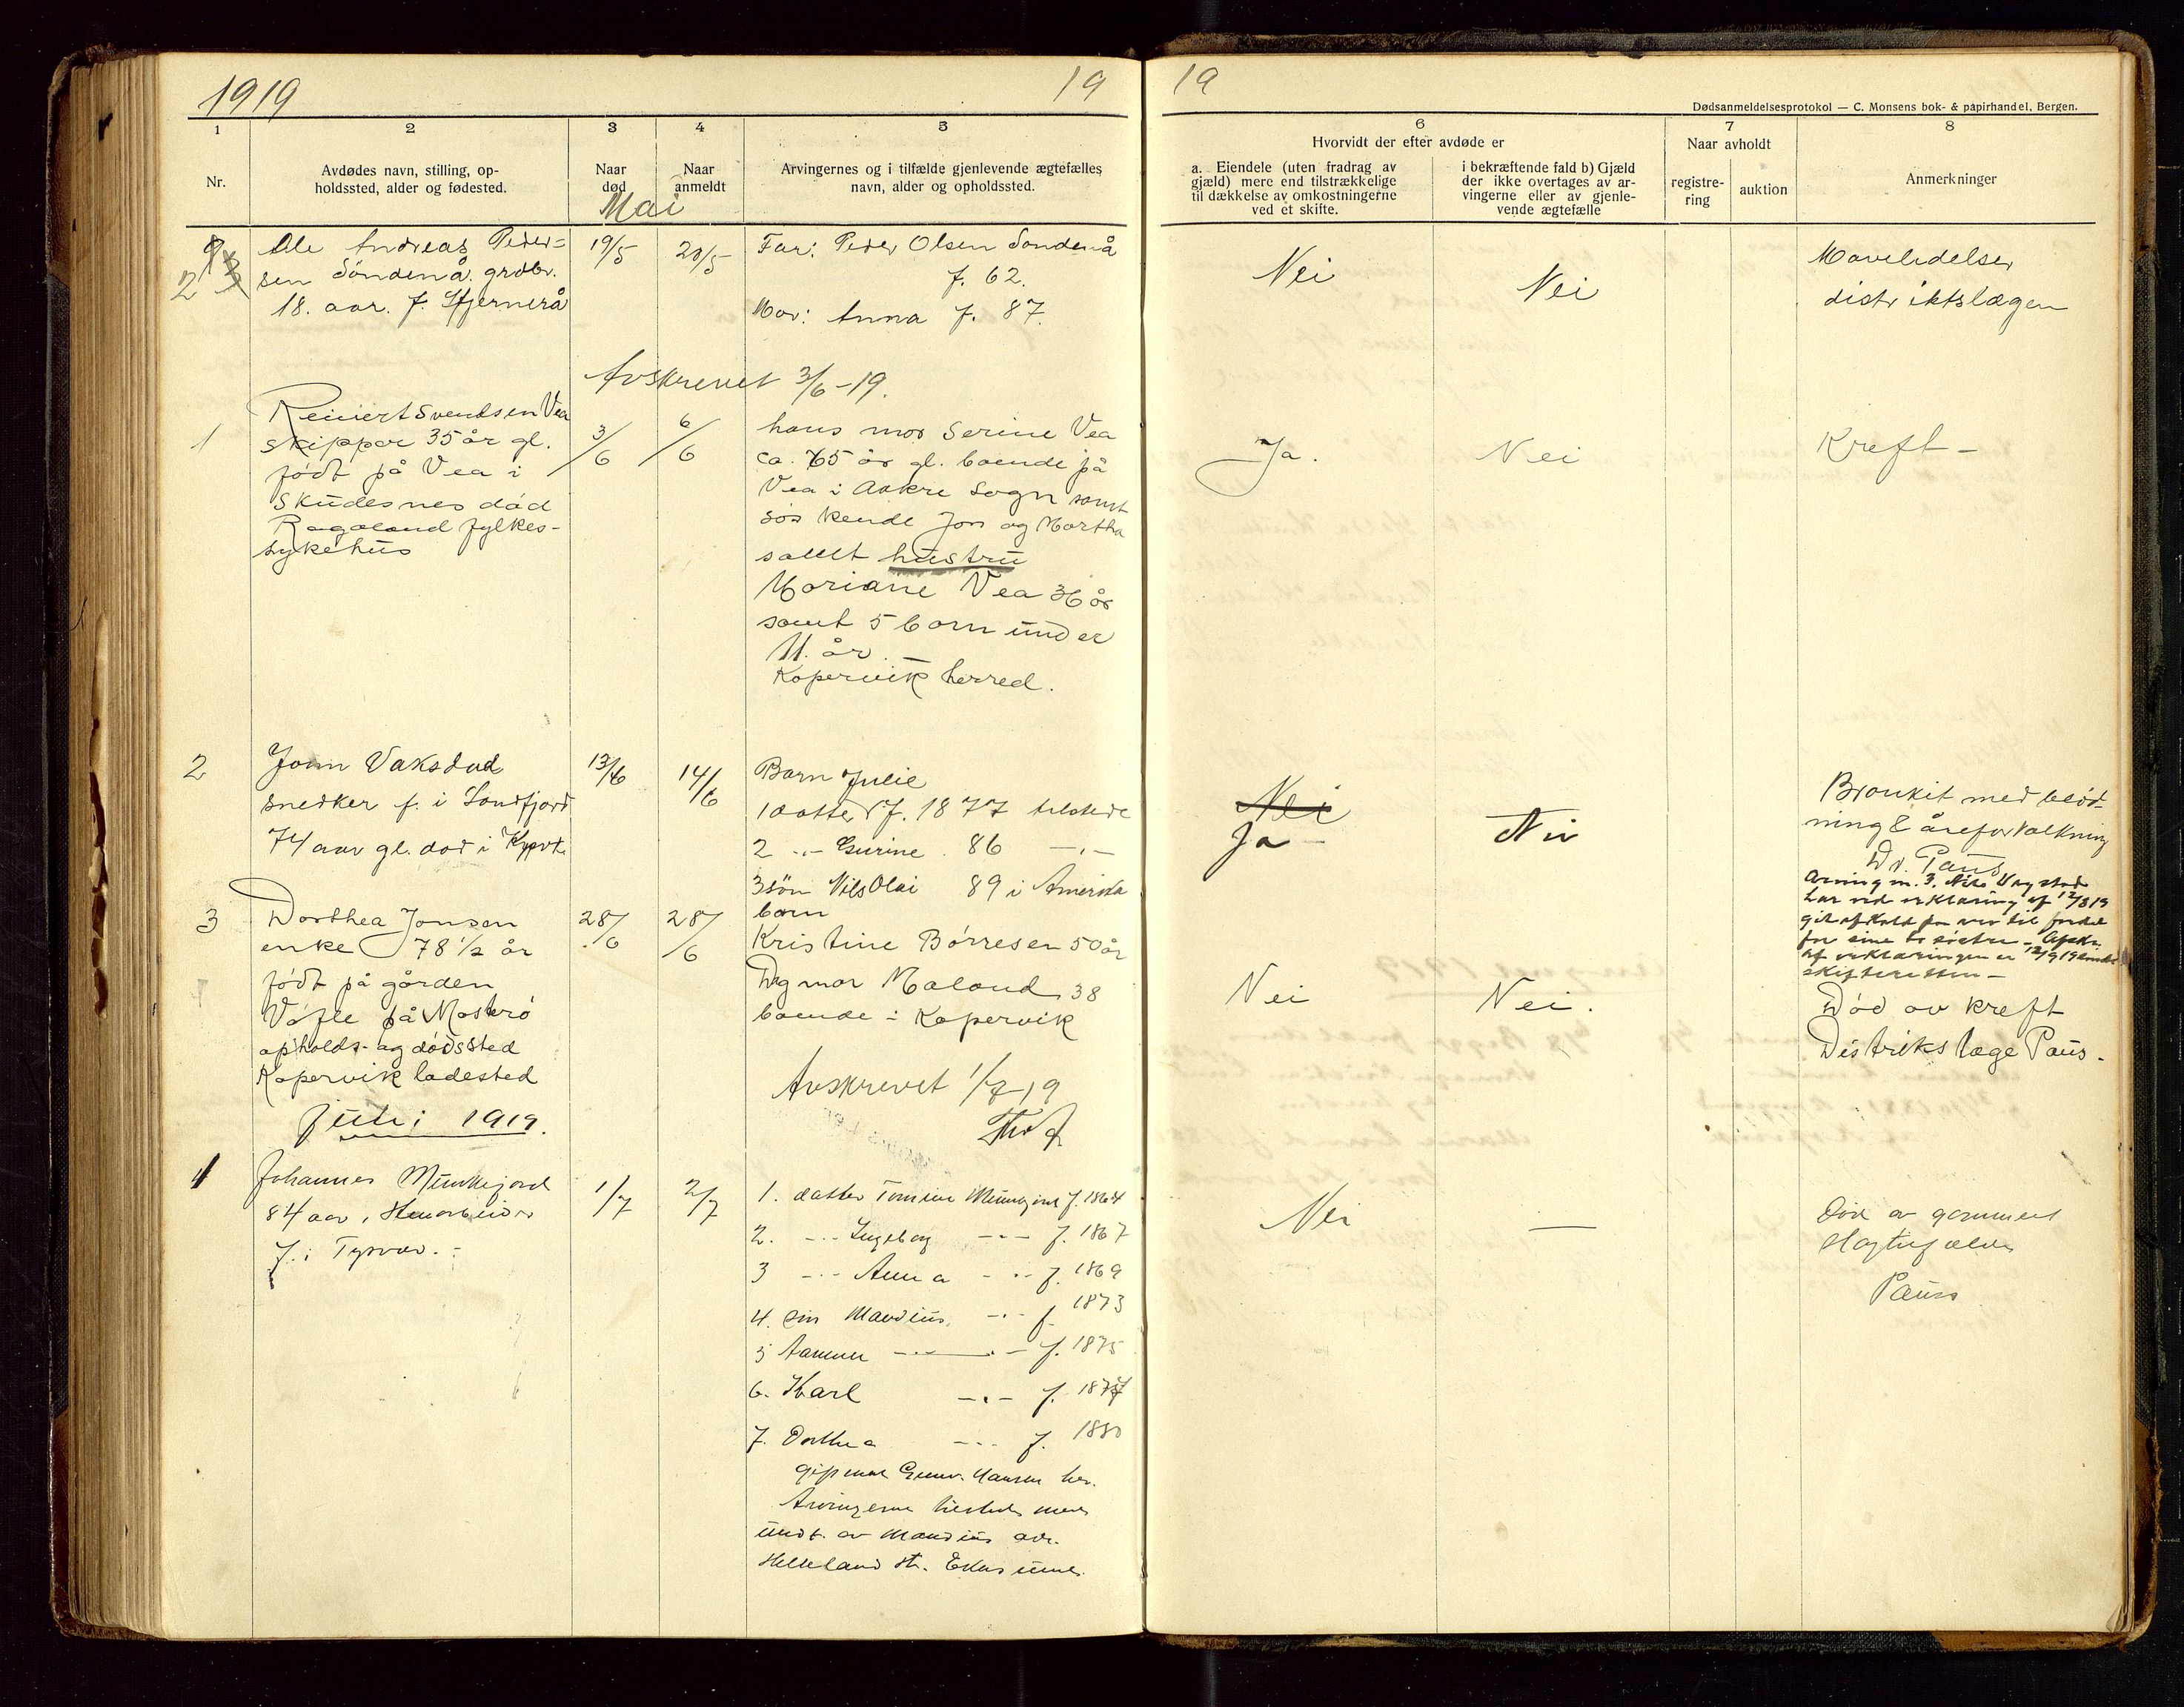 1919
19
19
Dødsanmeldelsesprotokol — C. Monsens bok- & papirhandel, Bergen.
1
2
3
4
5
6
7
8
Nr.
Avdødes navn, stilling, op-
holdssted, alder og fødested.
Naar
død
Naar
anmeldt
Mai
Arvingernes og i tilfælde gjenlevende ægtefælles
navn, alder og opholdssted.
Hvorvidt der efter avdøde er
a. Eiendele (uten fradrag av
gjæld) mere end tilstrækkelige
til dækkelse av omkostningerne
ved et skifte.
i bekræftende fald b) Gjæld
der ikke overtages av ar-
vingerne eller av gjenle-
vende ægtefælle
Naar avholdt
registre-
ring
auktion
Anmerkninger
2
Ole Andreas Peder=
sen Söndenå. grdbr.
18. aar. f. Stjernerå
19/5
20/5
Far: Peder Olsen Söndenå
f. 62.
Mor: Anna f. 87.
Nei
Nei
Mavelidelser
distriktslægen
Avskrevet 3/6-19.
1
Reinert Svendsen Vea
skipper 35 år gl.
født på Vea i
Skudesnes död
Rogaland fylkes-
sykehus
3/6
6/6
hans mor Serine Vea
ca. 65 år gl. boende på
Vea i Aakre Sogn samt
søs kende Jon og Martha
samt hustru
Mariane Vea 36 år
samt 5 born under
11. år.
Kopervik herred.
Ja.
Nei
Kreft -
2
Jonn Vaksdad
snedker f. i Sondfjord
74 aar gl. død i Kpvk.
13/6
14/6
Barn Julie
1 datter f. 1877 tilstede
2 -"- Gurine . 86 -"-
3 sön Nils Olai 89 i Amerika
Nei
Ja -
Nei
Bronkit med blöd-
ning & åreforkalkning
Dr. Paus
Arving nr. 3. Nils
har ved erklæring af 12/8 19
git afkald på arv til fordel
for sine to söstre -
af erklæringen er 12/9 19 sendt
skifteretten -
3
Dorthea Jonsen
enke 78 1/2 år
född på gården
på Mosterö
opholds- og dödssted
Kopervik ladested
28/6
28/6
born
Kristine Börresen 50 år
Dagmar Maland 38
boende i Kopervik
Nei
Nei.
Död av kreft
Distrikslæge Paus.
Avskrevet 1/7-19
Juli 1919.
1
Johannes Munkejord
84 aar,
f. i Tysvær. -
1/7
2/7
1. datter Tomine Munkejord f. 1864
2. -"- Ingeborg -"- f. 1867
3 -"- Anna -"- f. 1869
4. sön Mandius -"- f. 1873
5 -"- f. 1875
6. Karl -"- f. 1877
7. Dorthea -"- f. 1880
gift med Hansen her.
Arvingerne tilstede med
undt. av Mandius adr.
Helleland st.
Nei
—
Död av gammels
Paus